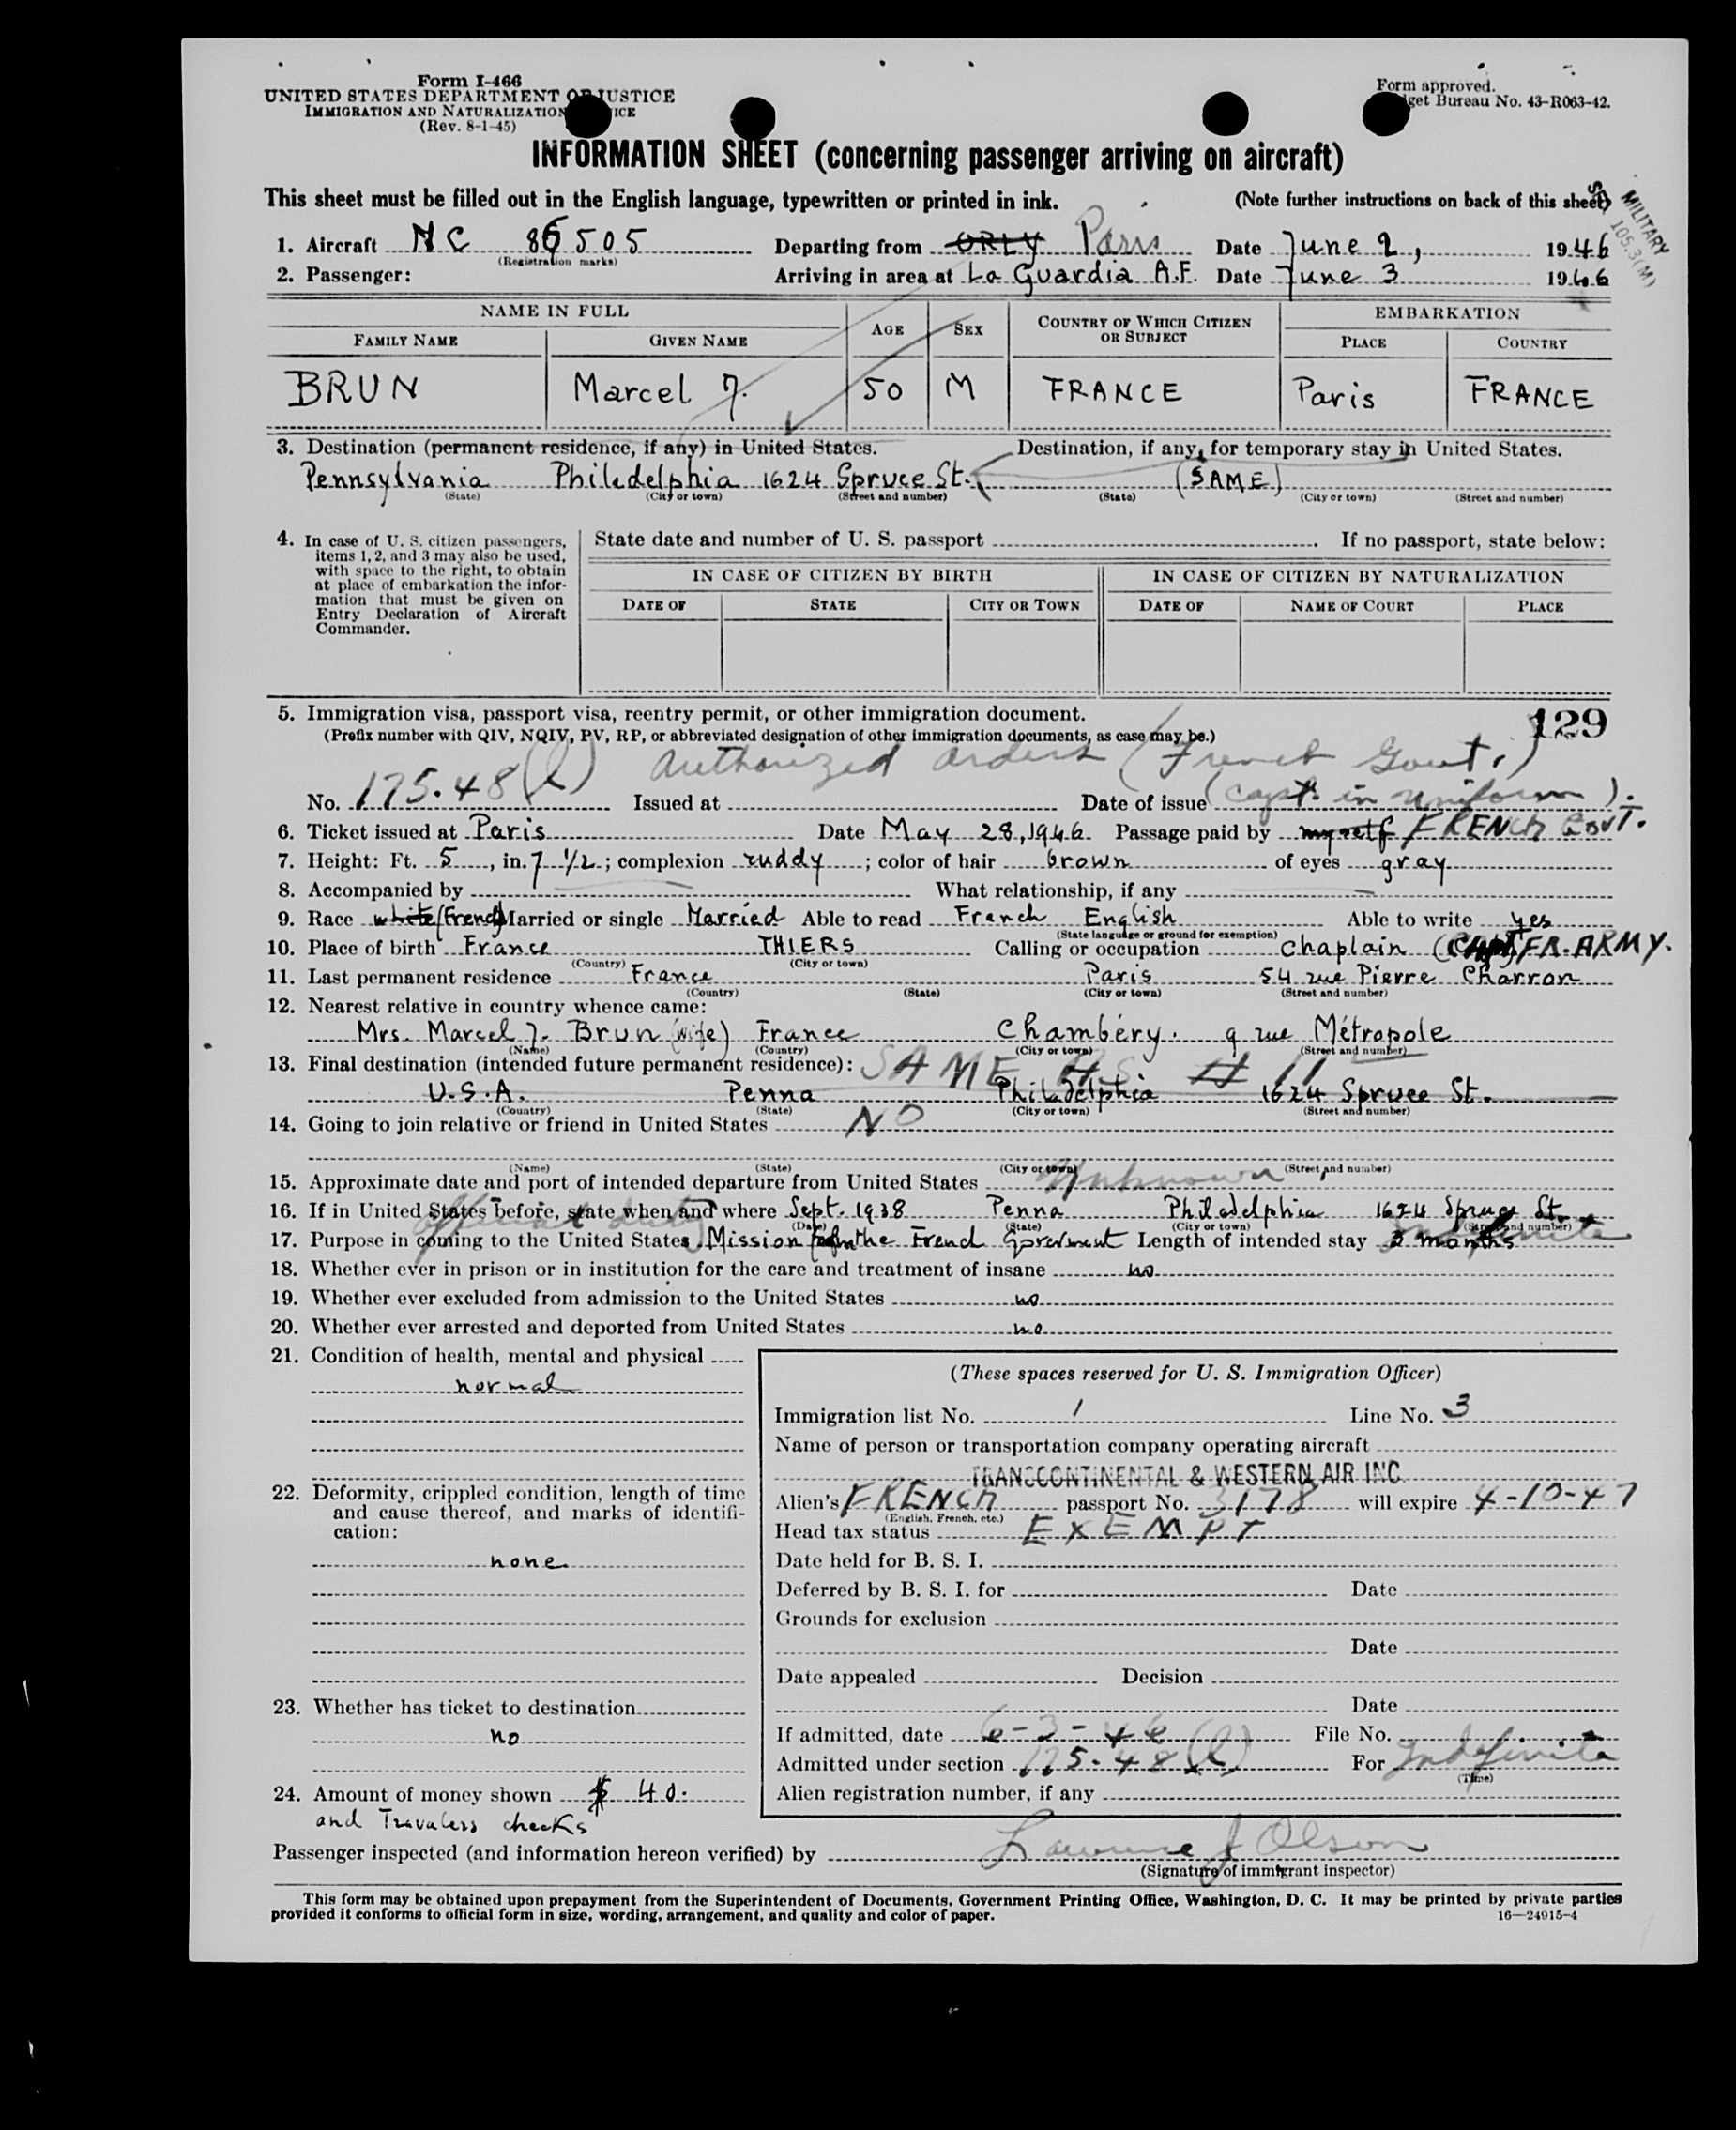 Form I-466
UNITED STATES DEPARTMENT OF JUSTICE
IMMIGRATION AND NATURALIZATION ICE
(Rev. 8-1-45)
Form approved.
get Bureau No. 43-R063-42.
INFORMATION SHEET (concerning passenger arriving on aircraft)
This sheet must be filled out in the English language, typewritten or printed in ink. (Note further instructions on back of this sheet)
MILITARY
105.3(M)
1. Aircraft NC 86505 Departing from ORLY Paris Date June 2, 1946
(Registration marks)
2. Passenger: Arriving in area at La Guardia A.F. Date June 3 1946
NAME IN FULL AGE SEX COUNTRY OF WHICH CITIZEN OR SUBJECT EMBARKATION
FAMILY NAME GIVEN NAME PLACE COUNTRY
BRUN Marcel J. 50 M FRANCE Paris FRANCE
3. Destination (permanent residence, if any) in United States. Destination, if any, for temporary stay in United States.
Pennsylvania Philadelphia 1624 Spruce St. (SAME)
(State) (City or town) (Street and number) (State) (City or town) (Street and number)
4. In case of U. S. citizen passengers, items 1, 2, and 3 may also be used, with space to the right, to obtain at place of embarkation the information that must be given on Entry Declaration of Aircraft Commander.
State date and number of U. S. passport . If no passport, state below:
IN CASE OF CITIZEN BY BIRTH IN CASE OF CITIZEN BY NATURALIZATION
DATE OF STATE CITY OR TOWN DATE OF NAME OF COURT PLACE
5. Immigration visa, passport visa, reentry permit, or other immigration document. 129
(Prefix number with QIV, NQIV, PV, RP, or abbreviated designation of other immigration documents, as case may be.)
Authorized orders (French Govt.)
No. 175.48(l) Issued at Date of issue (Capt. in uniform).
6. Ticket issued at Paris Date May 28, 1946 Passage paid by myself FRENCH GOVT.
7. Height: Ft. 5, in. 7 1/2; complexion ruddy; color of hair brown of eyes gray
8. Accompanied by What relationship, if any
9. Race white (French) Married or single Married Able to read French English Able to write yes
(State language or ground for exemption)
10. Place of birth France THIERS Calling or occupation Chaplain (CAPT. FR. ARMY.
(Country) (City or town)
11. Last permanent residence France Paris 54 rue Pierre Charron
(Country) (State) (City or town) (Street and number)
12. Nearest relative in country whence came:
Mrs. Marcel J. Brun (wife) France Chambéry. 9 rue Métropole
(Name) (Country) (City or town) (Street and number)
13. Final destination (intended future permanent residence): SAME AS # 11
U.S.A. Penna Philadelphia 1624 Spruce St.
(Country) (State) (City or town) (Street and number)
14. Going to join relative or friend in United States NO
(Name) (State) (City or town) (Street and number)
15. Approximate date and port of intended departure from United States Unknown
16. If in United States before, state when and where Sept. 1938 Penna Philadelphia 1624 Spruce St.
(Date) (State) (City or town) (Street and number)
official duty
17. Purpose in coming to the United States Mission the French Goverment Length of intended stay 3 months Indefinite
18. Whether ever in prison or in institution for the care and treatment of insane no
19. Whether ever excluded from admission to the United States no
20. Whether ever arrested and deported from United States no
21. Condition of health, mental and physical
normal
22. Deformity, crippled condition, length of time and cause thereof, and marks of identification:
none
23. Whether has ticket to destination
no
24. Amount of money shown $ 40.
and Travalers checks
(These spaces reserved for U. S. Immigration Officer)
Immigration list No. 1 Line No. 3
Name of person or transportation company operating aircraft
TRANSCONTINENTAL & WESTERN AIR INC
Alien's FRENCH passport No. 3178 will expire 4-10-47
(English, French, etc.)
Head tax status EXEMPT
Date held for B. S. I.
Deferred by B. S. I. for Date
Grounds for exclusion
Date
Date appealed Decision
Date
If admitted, date 6-3-46 File No.
Admitted under section 175.48(l) For Indefinite
(Time)
Alien registration number, if any
Passenger inspected (and information hereon verified) by Lawrence J Olson
(Signature of immigrant inspector)
This form may be obtained upon prepayment from the Superintendent of Documents, Government Printing Office, Washington, D. C. It may be printed by private parties
provided it conforms to official form in size, wording, arrangement, and quality and color of paper.
16—24915-4